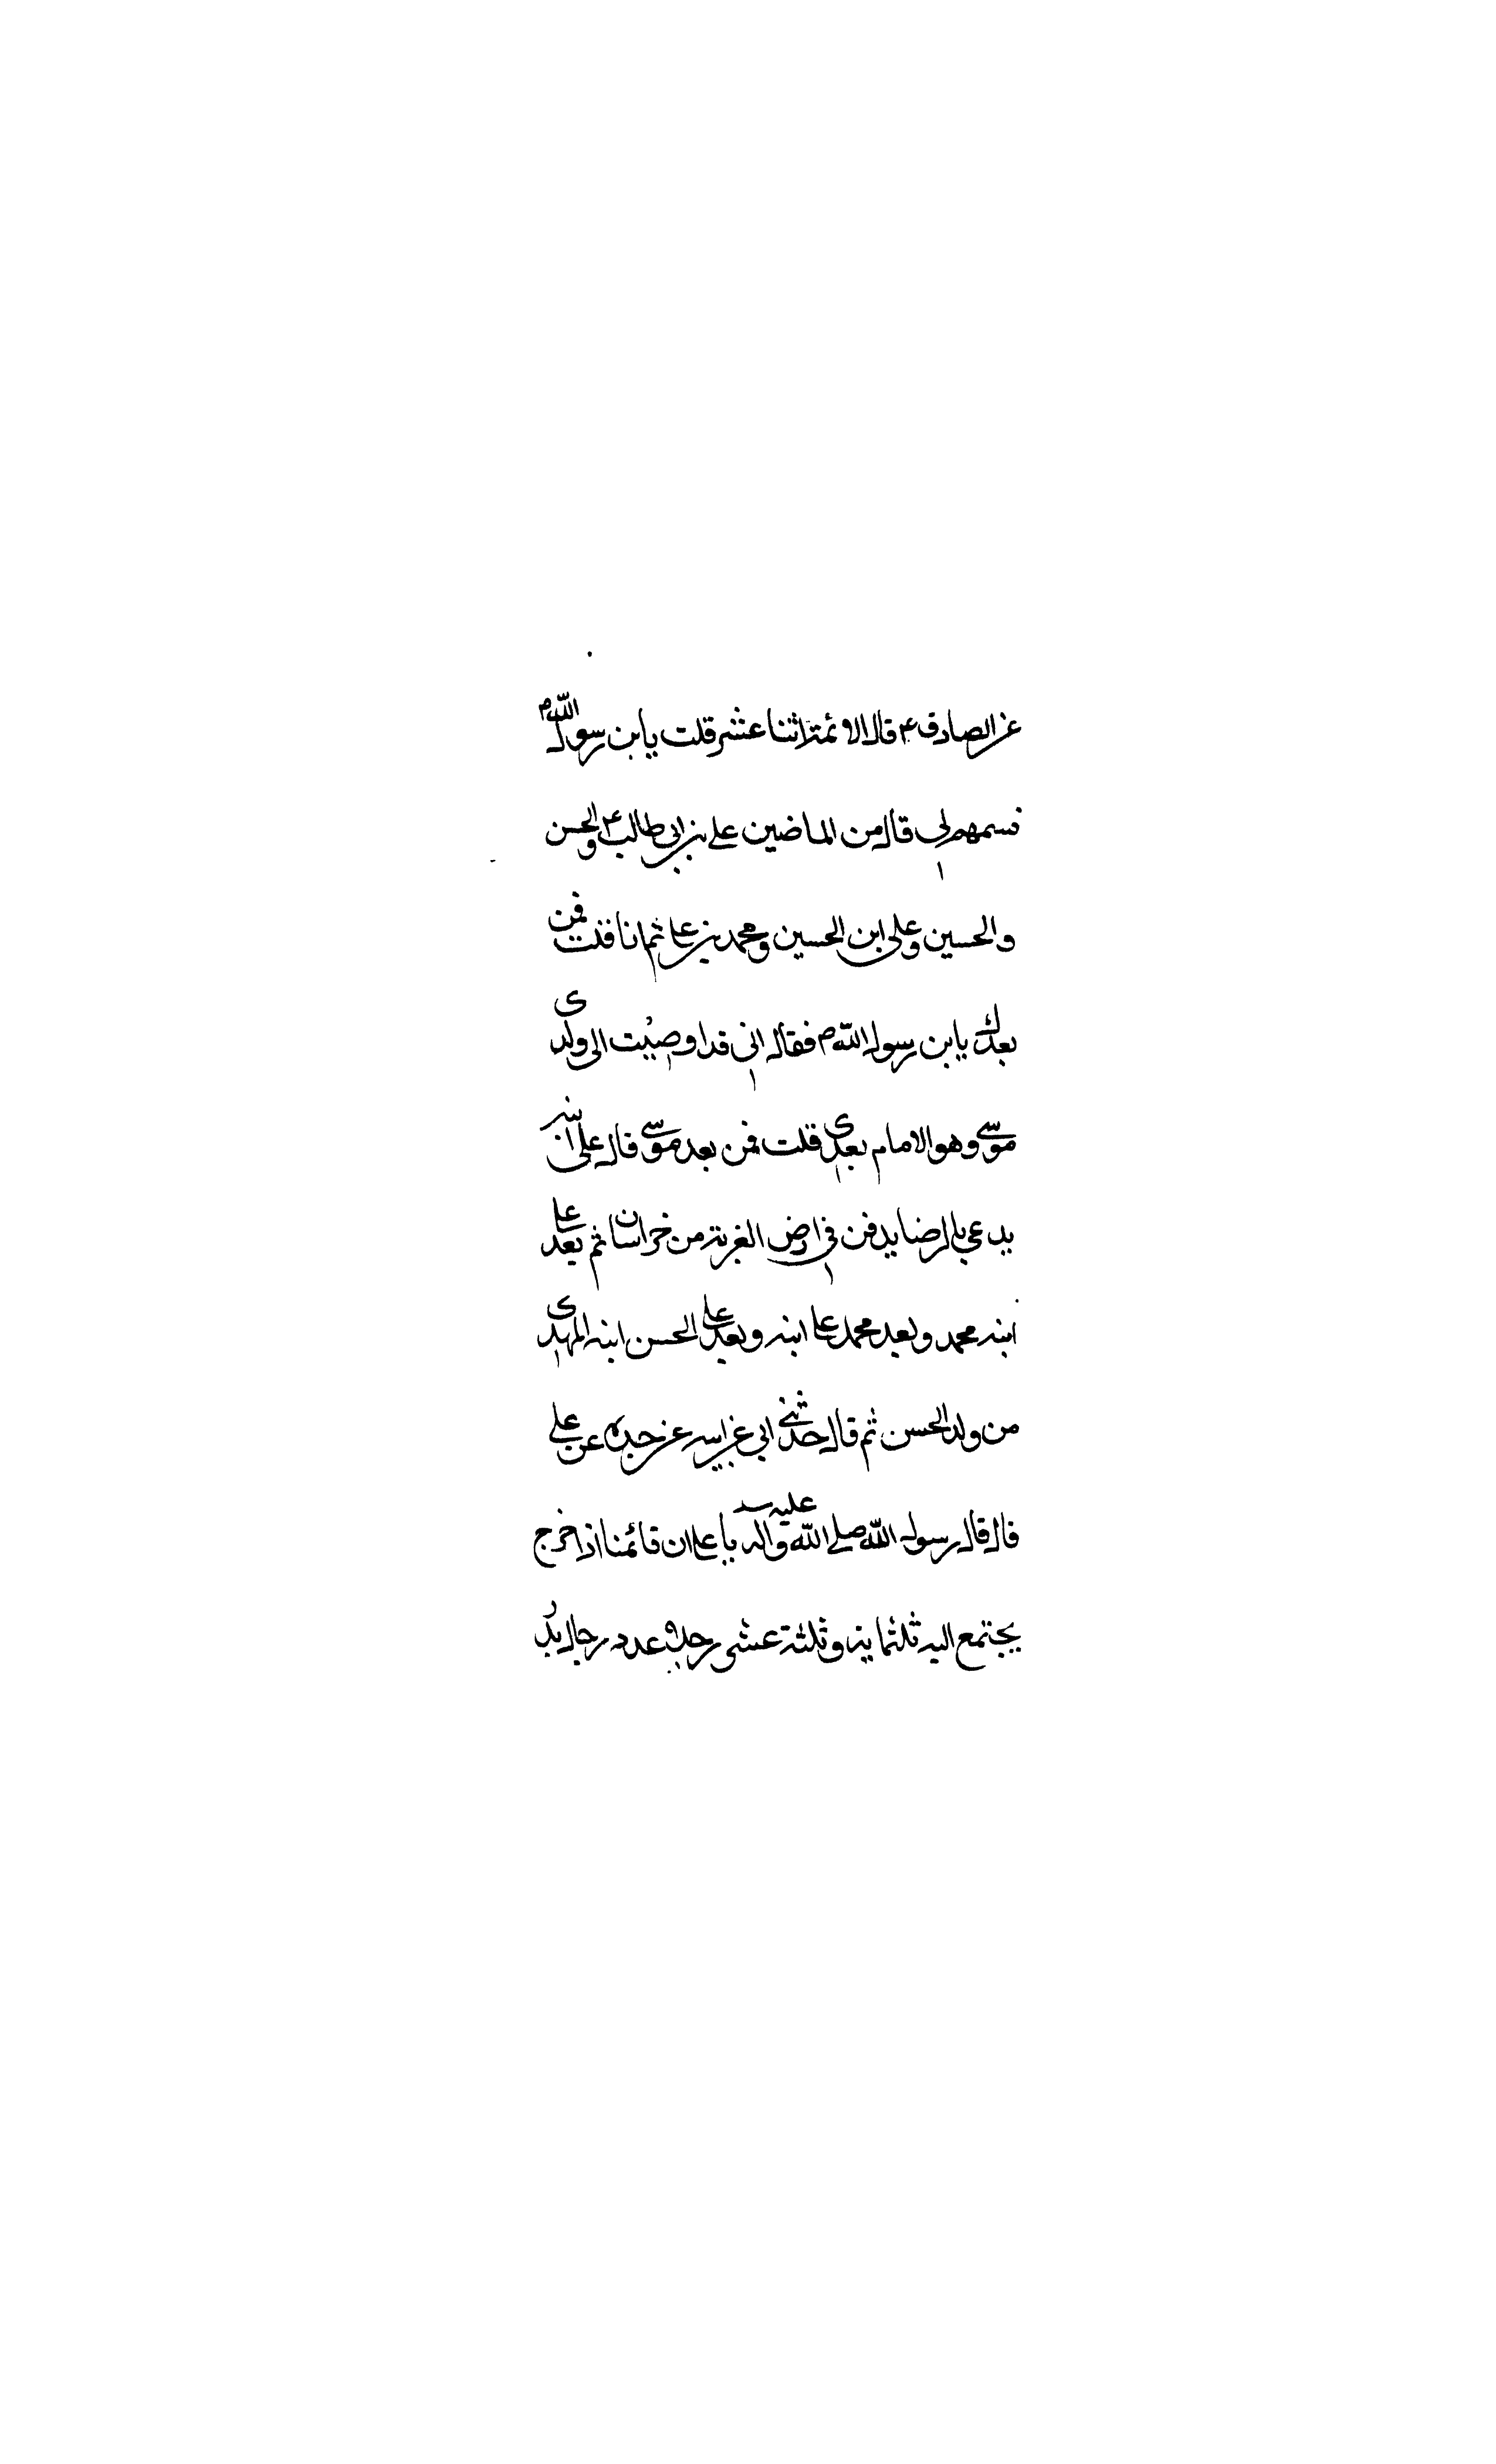 عن الصادق ع قال الائمة اثنا عشر قلت يابن رسول الله ص
فسمهم لي قال من الماضين علي بن ابي طالب ع والحسن
والحسين وعلي ابن الحسين ومحمد بن علي ثم انا قلت فمن
بعدك يابن رسول الله ص فقال اني قد اوصيت الى ولدي
موسى وهو الامام بعدي قلت فمن بعد موسى قال علي ابنه
يدعى بالرضا يدفن في ارض الغربة من خراسان ثم بعد علي
ابنه محمد وبعد محمد علي ابنه وبعد علي الحسن ابنه المهدي
من ولد الحسن ثم قال حدثني ابي عن ابيه عن جده عن علي
قال قال رسول الله صلى الله عليه واله يا علي ان قائمنا اذا خرج
يجتمع اليه ثلثماية وثلثة عشر رجلا عدد رجال بدر